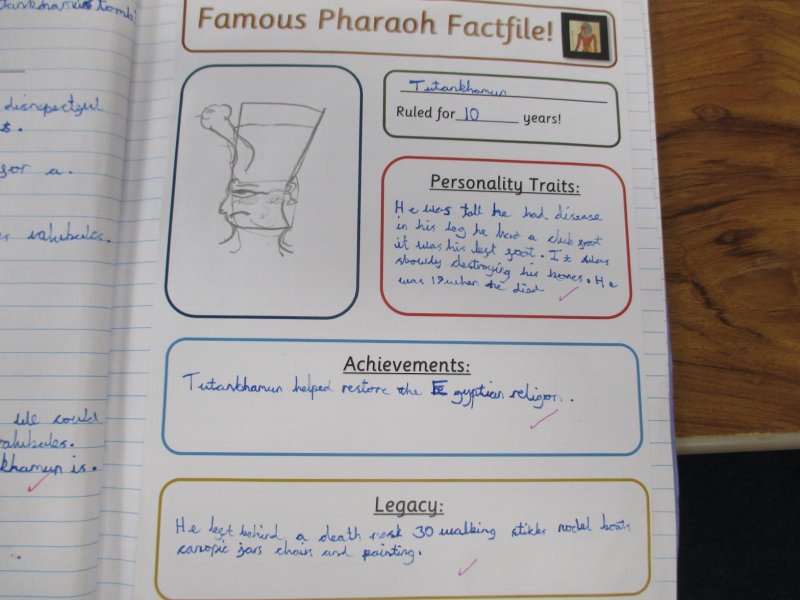 tankhamus tomb.
disrepectful
for a.
valubules.
we could
valubules.
khamun is.
Famous Pharaoh Factfile!
Tutankhamun
Ruled for 10 years!
Personality Traits:
He was tall he had disease
in his leg he had a club foot
it was his left foot. It was
slowly destroying his bones. He
was 19 when he died
Achievements:
Tutankhamun helped restore the Egyptian religion.
Legacy:
He left behind a death mask 30 walking sticks model boats
canopic jars chairs and painting.